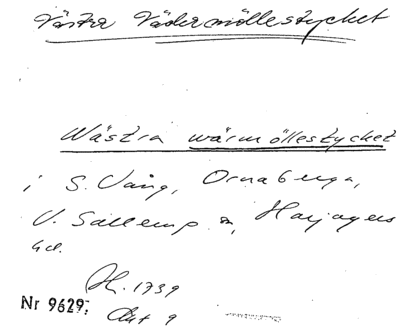 Västra Vädermöllestycket
Wästra wärmöllestycket
i S. Vång, Ornaberga,
V. Sallerup sn, Harjagers
hd.
H. 1739
Nr 9629; Akt 9